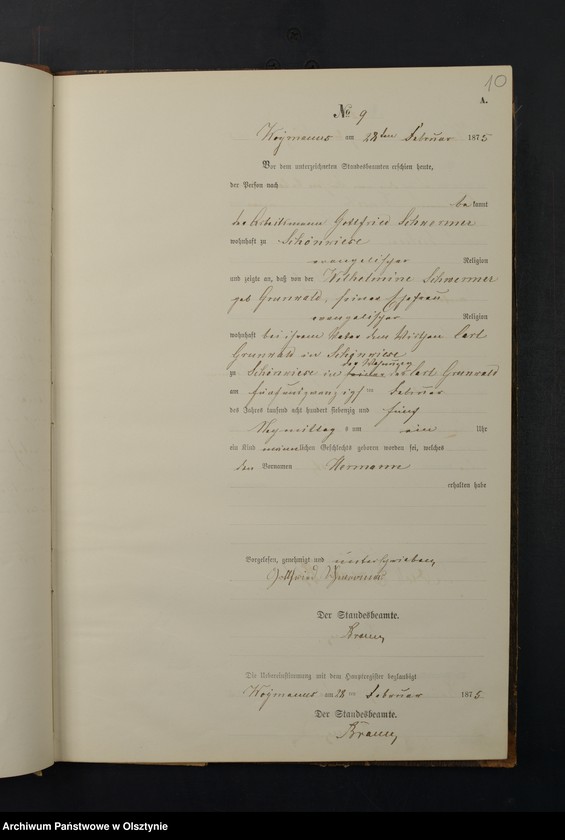 10
A.
No 9
am 28ten Februar 1875
Vor dem unterzeichneten Standesbeamten erschien heute,
der Person nach
be kannt
Gottfried Schwermer
wohnhaft zu Schönwiese
evangelischer Religion
und zeigte an, daß von der Wilhelmine Schwermer
geb Grunwald, seiner Ehefrau
evangelischer Religion
wohnhaft bei ihrem Vater dem Wirthen Carl
Grunwald in Schönwiese
der Wohnung
zu Schönwiese in des Carl Grunwald
am fünfundzwanzigsten Februar
des Jahrs tausend acht hundert siebenzig und fünf
Nachmittags um Uhr
ein Kind männlichen Geschlechts geboren worden sei, welches
den Vornamen Hermann
erhalten habe
Vorgelesen, genehmigt und unterschrieben
Gottfried Schwermer
Der Standesbeamte.
Die Uebereinstimmung mit dem Hauptregister beglaubigt
am 28 ten Februar 1875
Der Standesbeamte.
Archiwum Państwowe w Olsztynie